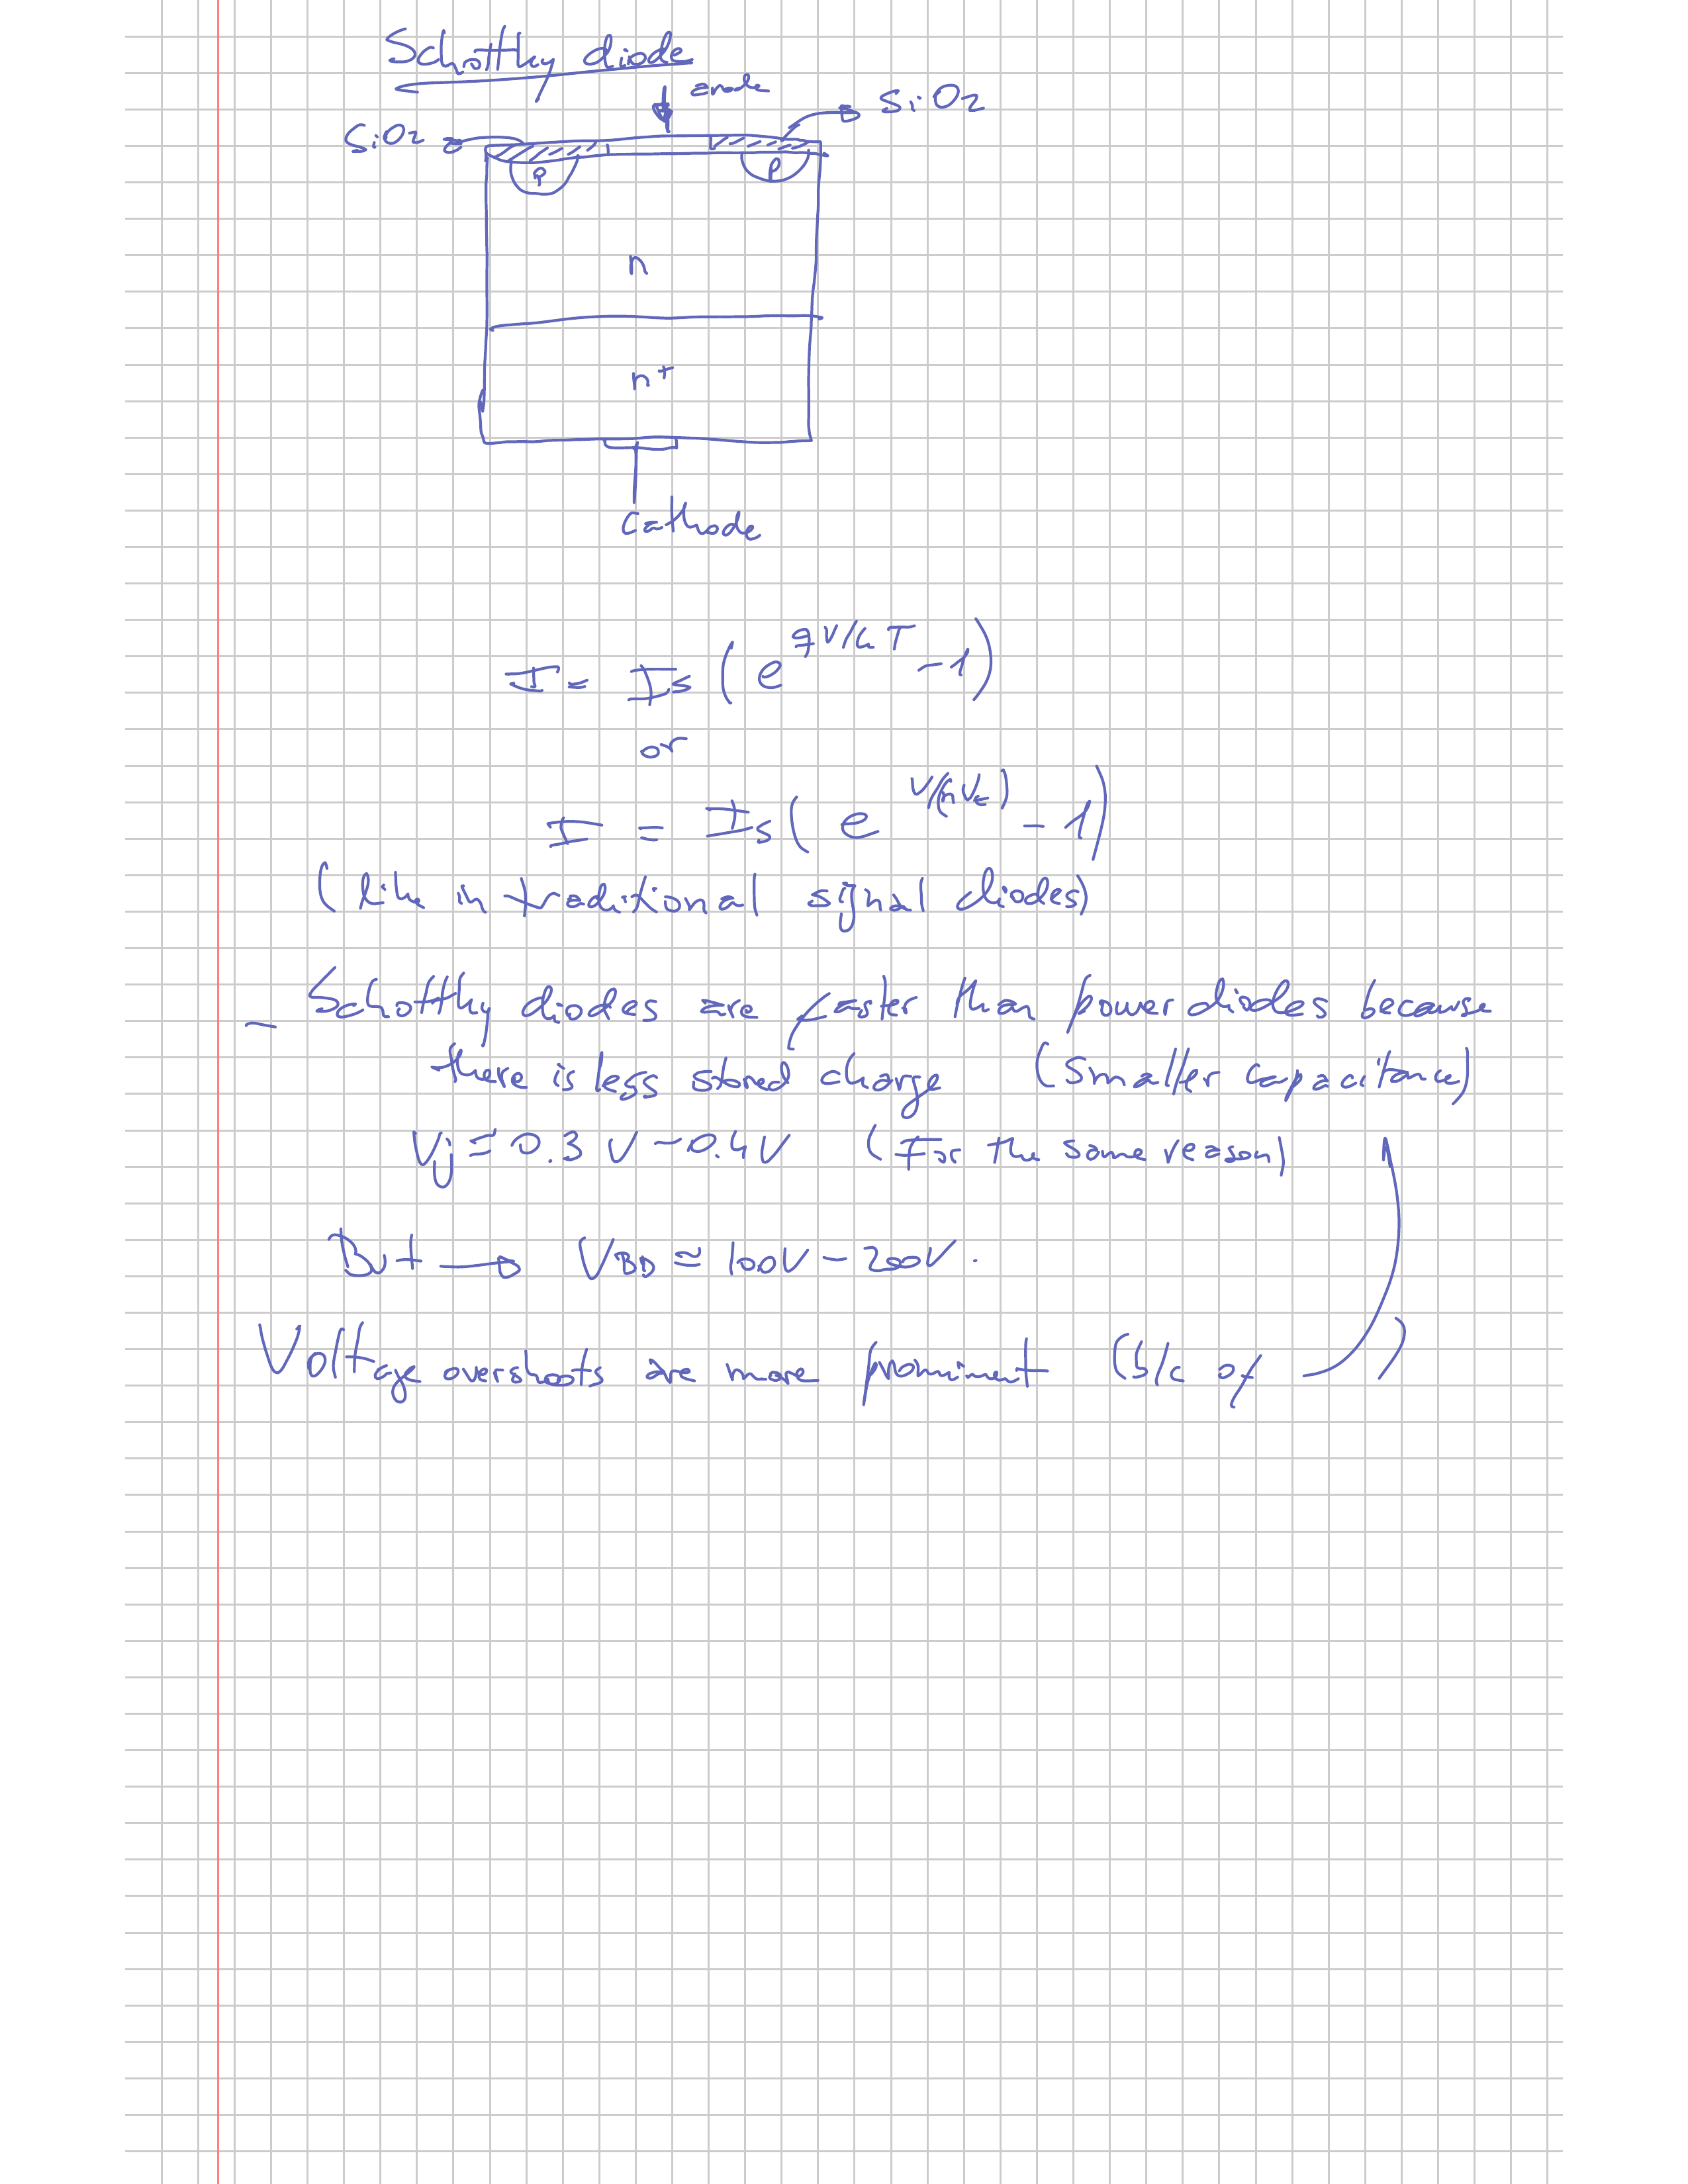 Schottky diode
anode
SiO2
SiO2
P
P
n
n+
cathode
I = Is (e^qV/kT - 1)
or
I = Is (e^V/(nVt) - 1)
(like in traditional signal diodes)
- Schottky diodes are faster than power diodes because
there is less stored charge (smaller capacitance)
Vj ≈ 0.3 V - 0.4 V (For the same reason)
But → VBD ≈ 100V - 200V.
Voltage overshoots are more prominent (b/c of )